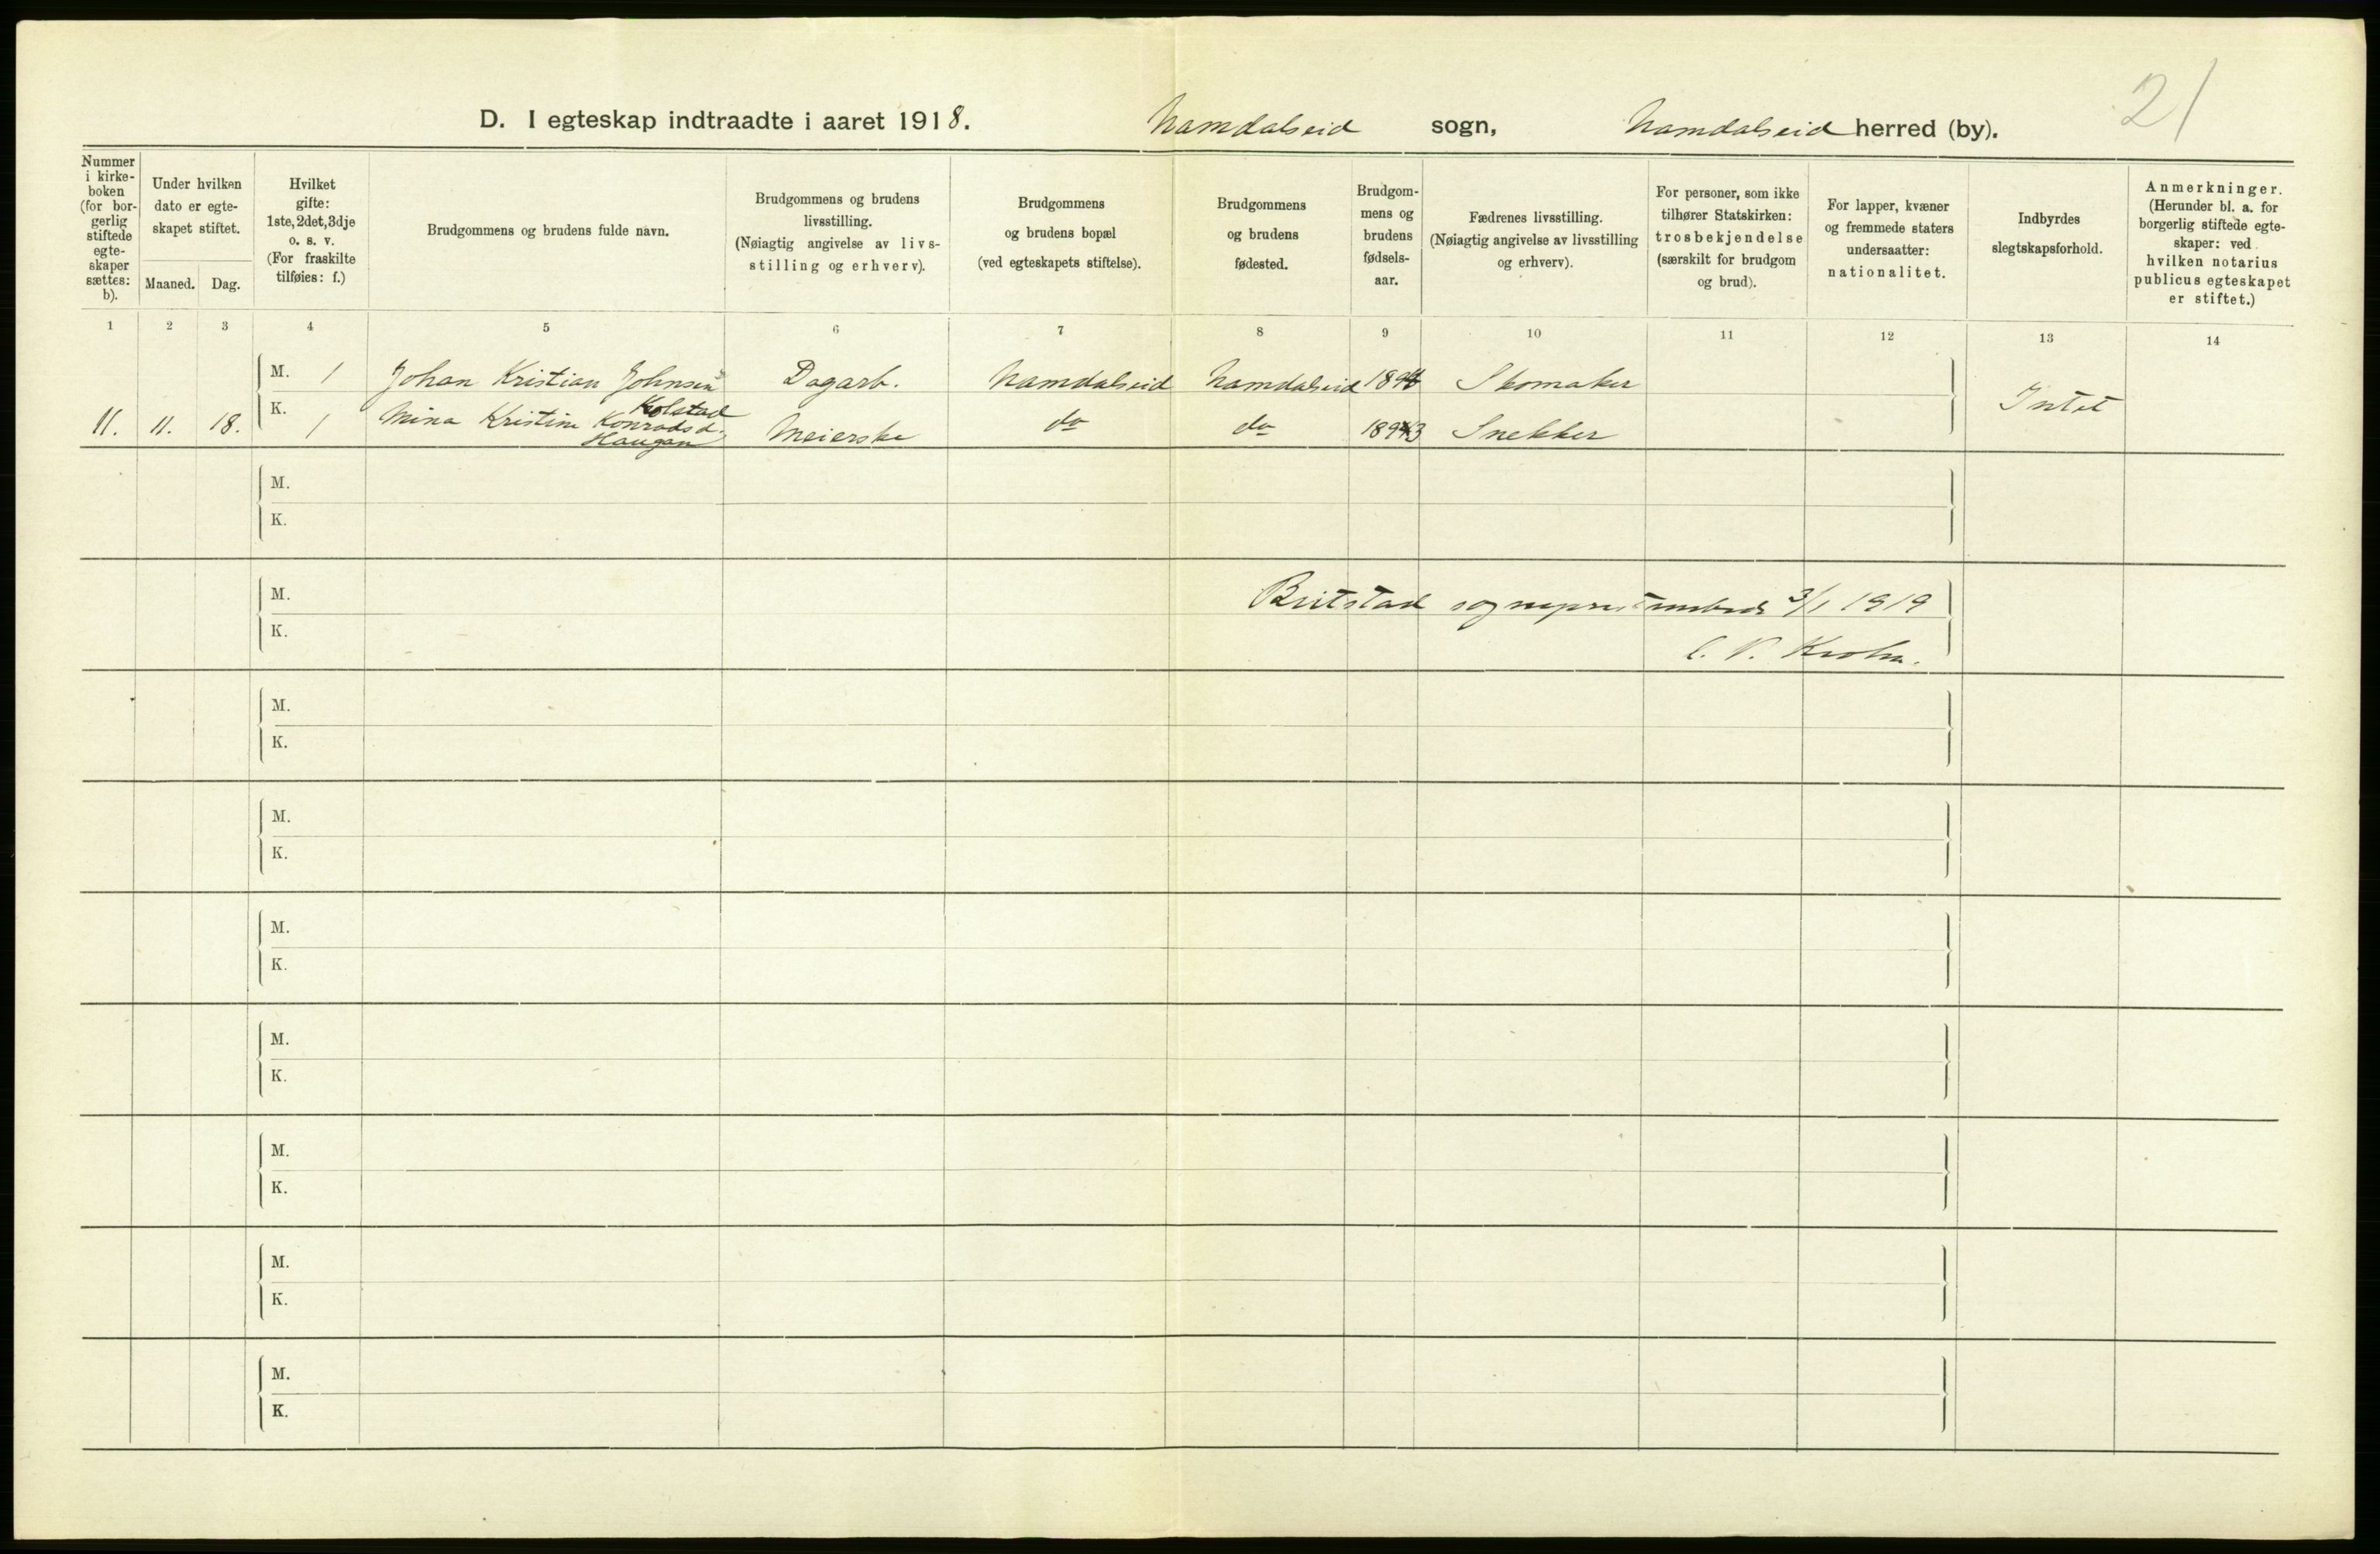 21
D. I egteskap indtraadte i aaret 1918. Namdalseid sogn, Namdalseid herred (by).
Nummer i kirke-boken (for bor-gerlig stiftede egte-skaper sættes: b).
Under hvilken dato er egte-skapet stiftet.
Maaned. Dag.
Hvilket gifte: 1ste, 2det, 3dje o. s. v. (For fraskilte tilføies: f.)
Brudgommens og brudens fulde navn.
Brudgommens og brudens livsstilling. (Nøiagtig angivelse av livs-stilling og erhverv).
Brudgommens og brudens bopæl (ved egteskapets stiftelse).
Brudgommens og brudens fødested.
Brudgom-mens og brudens fødsels-aar.
Fædrenes livsstilling. (Nøiagtig angivelse av livsstilling og erhverv).
For personer, som ikke tilhører Statskirken: trosbekjendelse (særskilt for brudgom og brud).
For lapper, kvæner og fremmede staters undersaatter: nationalitet.
Indbyrdes slegtskapsforhold.
Anmerkninger. (Herunder bl. a. for borgerlig stiftede egte-skaper: ved hvilken notarius publicus egteskapet er stiftet.)
1 2 3 4 5 6 7 8 9 10 11 12 13 14
M. 1 Johan Kristian Johnsen Dagarb. Namdalseid Namdalseid Skomaker
Kolstad
11. 11. 18. K. 1 Mina Kristine Konradsd. Meierske do do 1893 Snekker Intet
Haugan
M.
K.
M. Beitstad sogneprestembede 3/1 1919
K. C. V. Krohn.
M.
K.
M.
K.
M.
K.
M.
K.
M.
K.
M.
K.
M.
K.